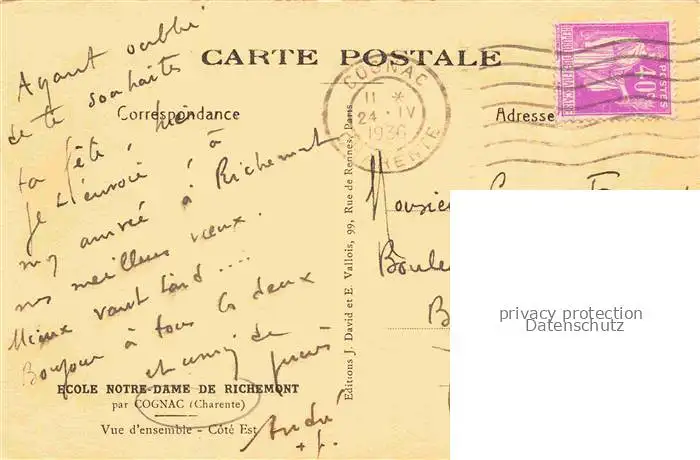 CARTE POSTALE
Correspondance
Adresse
COGNAC
11 *
24 · IV
1936
CHARENTE
POSTES
40c
REPUBLIQUE FRANCAISE
Ayant oublié
de te souhaiter
ta fête, hier
je t'envoie, à
mon arrivée à Richemont
nos meilleurs vœux.
Mieux vaut tard ....
Bonjour à tous les deux
et amis de
André
+ f.
Monsieur
Boule
B
Editions J. David et E. Vallois, 99, Rue de Rennes, Paris
ECOLE NOTRE-DAME DE RICHEMONT
par COGNAC (Charente)
Vue d'ensemble - Côté Est
privacy protection
Datenschutz